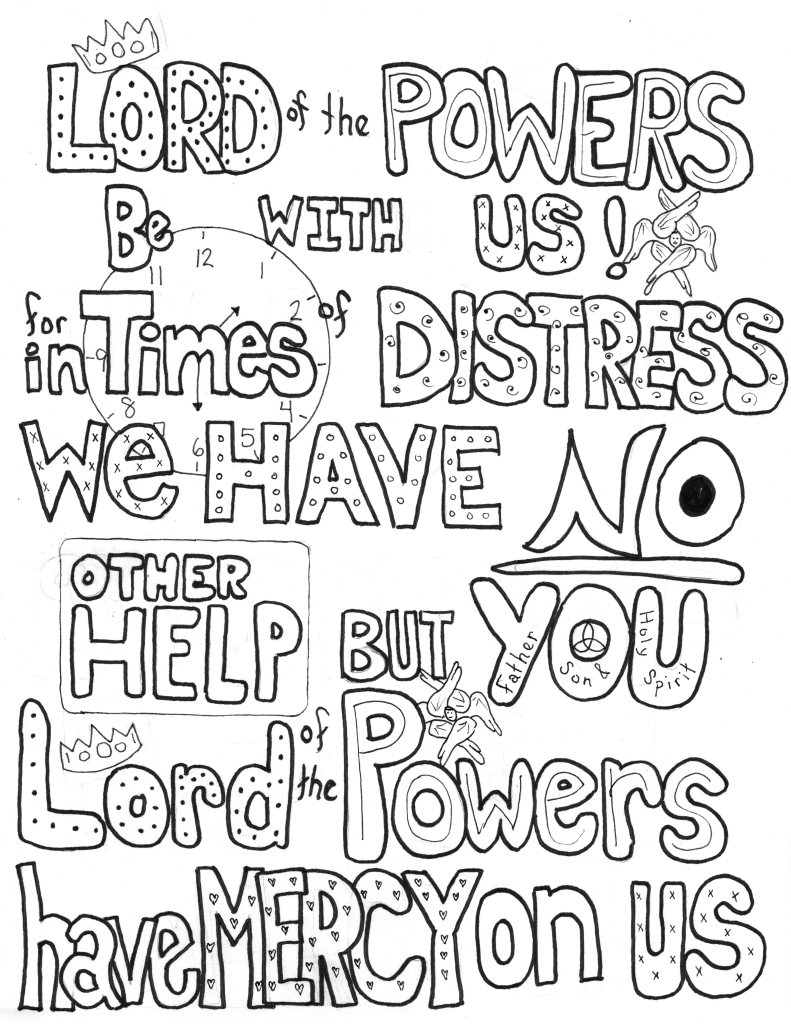 LORD of the POWERS
Be WITH US!
for in Times of DISTRESS
We HAVE NO
OTHER HELP BUT YOU
Father Son & Holy Spirit
Lord of the Powers
have MERCY on US
12
1
2
4
5
6
8
9
11